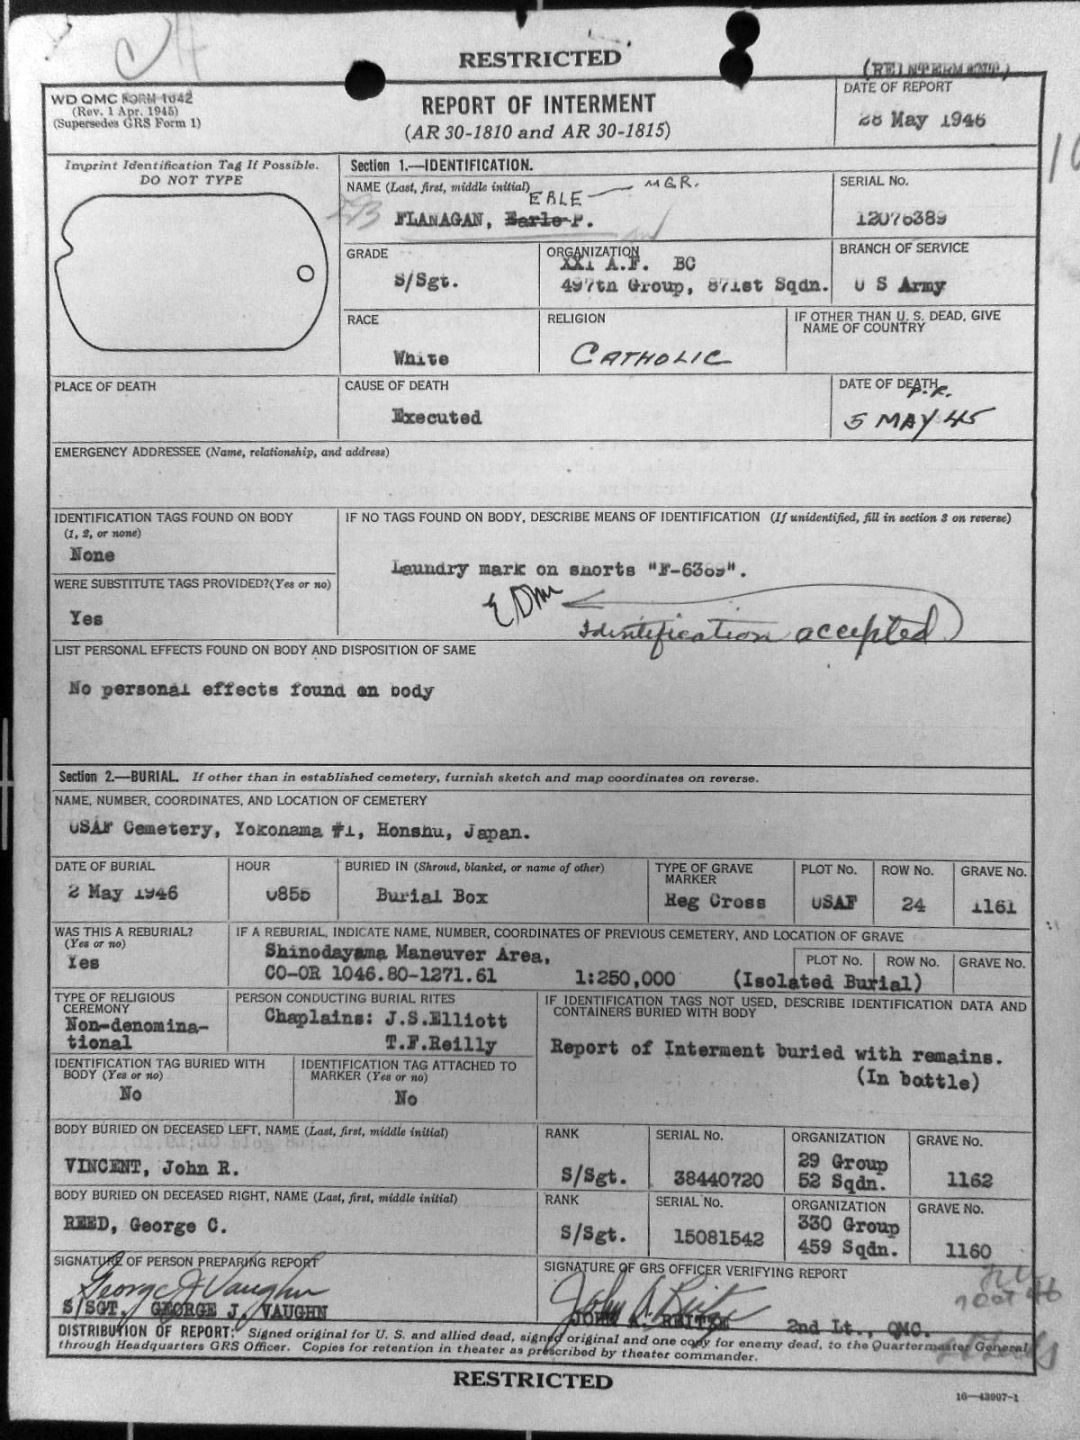 RESTRICTED
(REINTERMENT)
WD QMC FORM 1042
(Rev. 1 Apr. 1945)
(Supersedes GRS Form 1)
REPORT OF INTERMENT
(AR 30-1810 and AR 30-1815)
DATE OF REPORT
28 May 1946
Imprint Identification Tag If Possible.
DO NOT TYPE
Section 1.—IDENTIFICATION.
NAME (Last, first, middle initial)
ERLE MGR.
FLANAGAN, Earle P.
SERIAL No.
12076389
GRADE
S/Sgt.
ORGANIZATION
XXI A.F. BC
497th Group, 871st Sqdn.
BRANCH OF SERVICE
U S Army
RACE
White
RELIGION
CATHOLIC
IF OTHER THAN U. S. DEAD, GIVE
NAME OF COUNTRY
PLACE OF DEATH
CAUSE OF DEATH
Executed
DATE OF DEATH
P.R.
5 MAY 45
EMERGENCY ADDRESSEE (Name, relationship, and address)
IDENTIFICATION TAGS FOUND ON BODY
(1, 2, or none)
None
IF NO TAGS FOUND ON BODY, DESCRIBE MEANS OF IDENTIFICATION (If unidentified, fill in section 3 on reverse)
Laundry mark on shorts "F-6389".
WERE SUBSTITUTE TAGS PROVIDED?(Yes or no)
Yes
Identification accepted
LIST PERSONAL EFFECTS FOUND ON BODY AND DISPOSITION OF SAME
No personal effects found on body
Section 2.—BURIAL. If other than in established cemetery, furnish sketch and map coordinates on reverse.
NAME, NUMBER, COORDINATES, AND LOCATION OF CEMETERY
USAF Cemetery, Yokonama #1, Honshu, Japan.
DATE OF BURIAL
2 May 1946
HOUR
0855
BURIED IN (Shroud, blanket, or name of other)
Burial Box
TYPE OF GRAVE
MARKER
Reg Cross
PLOT No.
USAF
ROW No.
24
GRAVE No.
1161
WAS THIS A REBURIAL?
(Yes or no)
Yes
IF A REBURIAL, INDICATE NAME, NUMBER, COORDINATES OF PREVIOUS CEMETERY, AND LOCATION OF GRAVE
Shinodayama Maneuver Area,
CO-OR 1046.80-1271.61 1:250,000 (Isolated Burial)
PLOT No. ROW No. GRAVE No.
TYPE OF RELIGIOUS
CEREMONY
Non-denomina-
tional
PERSON CONDUCTING BURIAL RITES
Chaplains: J.S.Elliott
T.F.Reilly
IF IDENTIFICATION TAGS NOT USED, DESCRIBE IDENTIFICATION DATA AND
CONTAINERS BURIED WITH BODY
Report of Interment buried with remains.
(In bottle)
IDENTIFICATION TAG BURIED WITH
BODY (Yes or no)
No
IDENTIFICATION TAG ATTACHED TO
MARKER (Yes or no)
No
BODY BURIED ON DECEASED LEFT, NAME (Last, first, middle initial)
VINCENT, John R.
RANK
S/Sgt.
SERIAL No.
38440720
ORGANIZATION
29 Group
52 Sqdn.
GRAVE No.
1162
BODY BURIED ON DECEASED RIGHT, NAME (Last, first, middle initial)
REED, George C.
RANK
S/Sgt.
SERIAL No.
15081542
ORGANIZATION
330 Group
459 Sqdn.
GRAVE No.
1160
SIGNATURE OF PERSON PREPARING REPORT
George J Vaughn
S/SGT. GEORGE J. VAUGHN
SIGNATURE OF GRS OFFICER VERIFYING REPORT
2nd Lt., QMC.
DISTRIBUTION OF REPORT: Signed original for U. S. and allied dead, signed original and one copy for enemy dead, to the Quartermaster General
through Headquarters GRS Officer. Copies for retention in theater as prescribed by theater commander.
RESTRICTED
16—43997-1